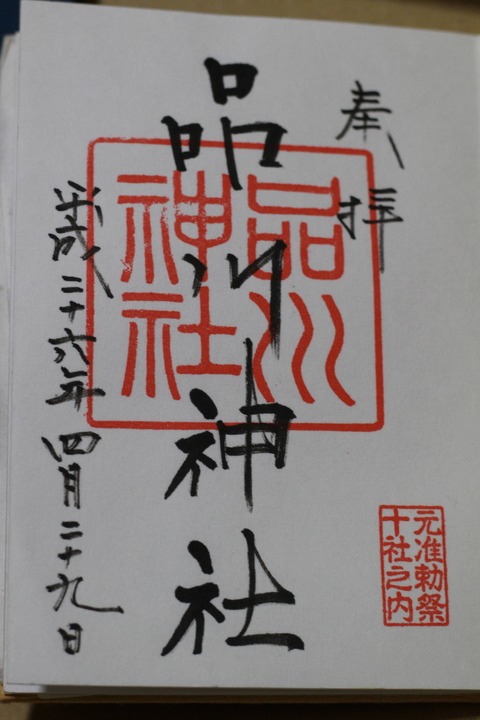 奉拝
品川神社
品川
神社
平成二十六年四月二十九日
元准勅祭
十社之内